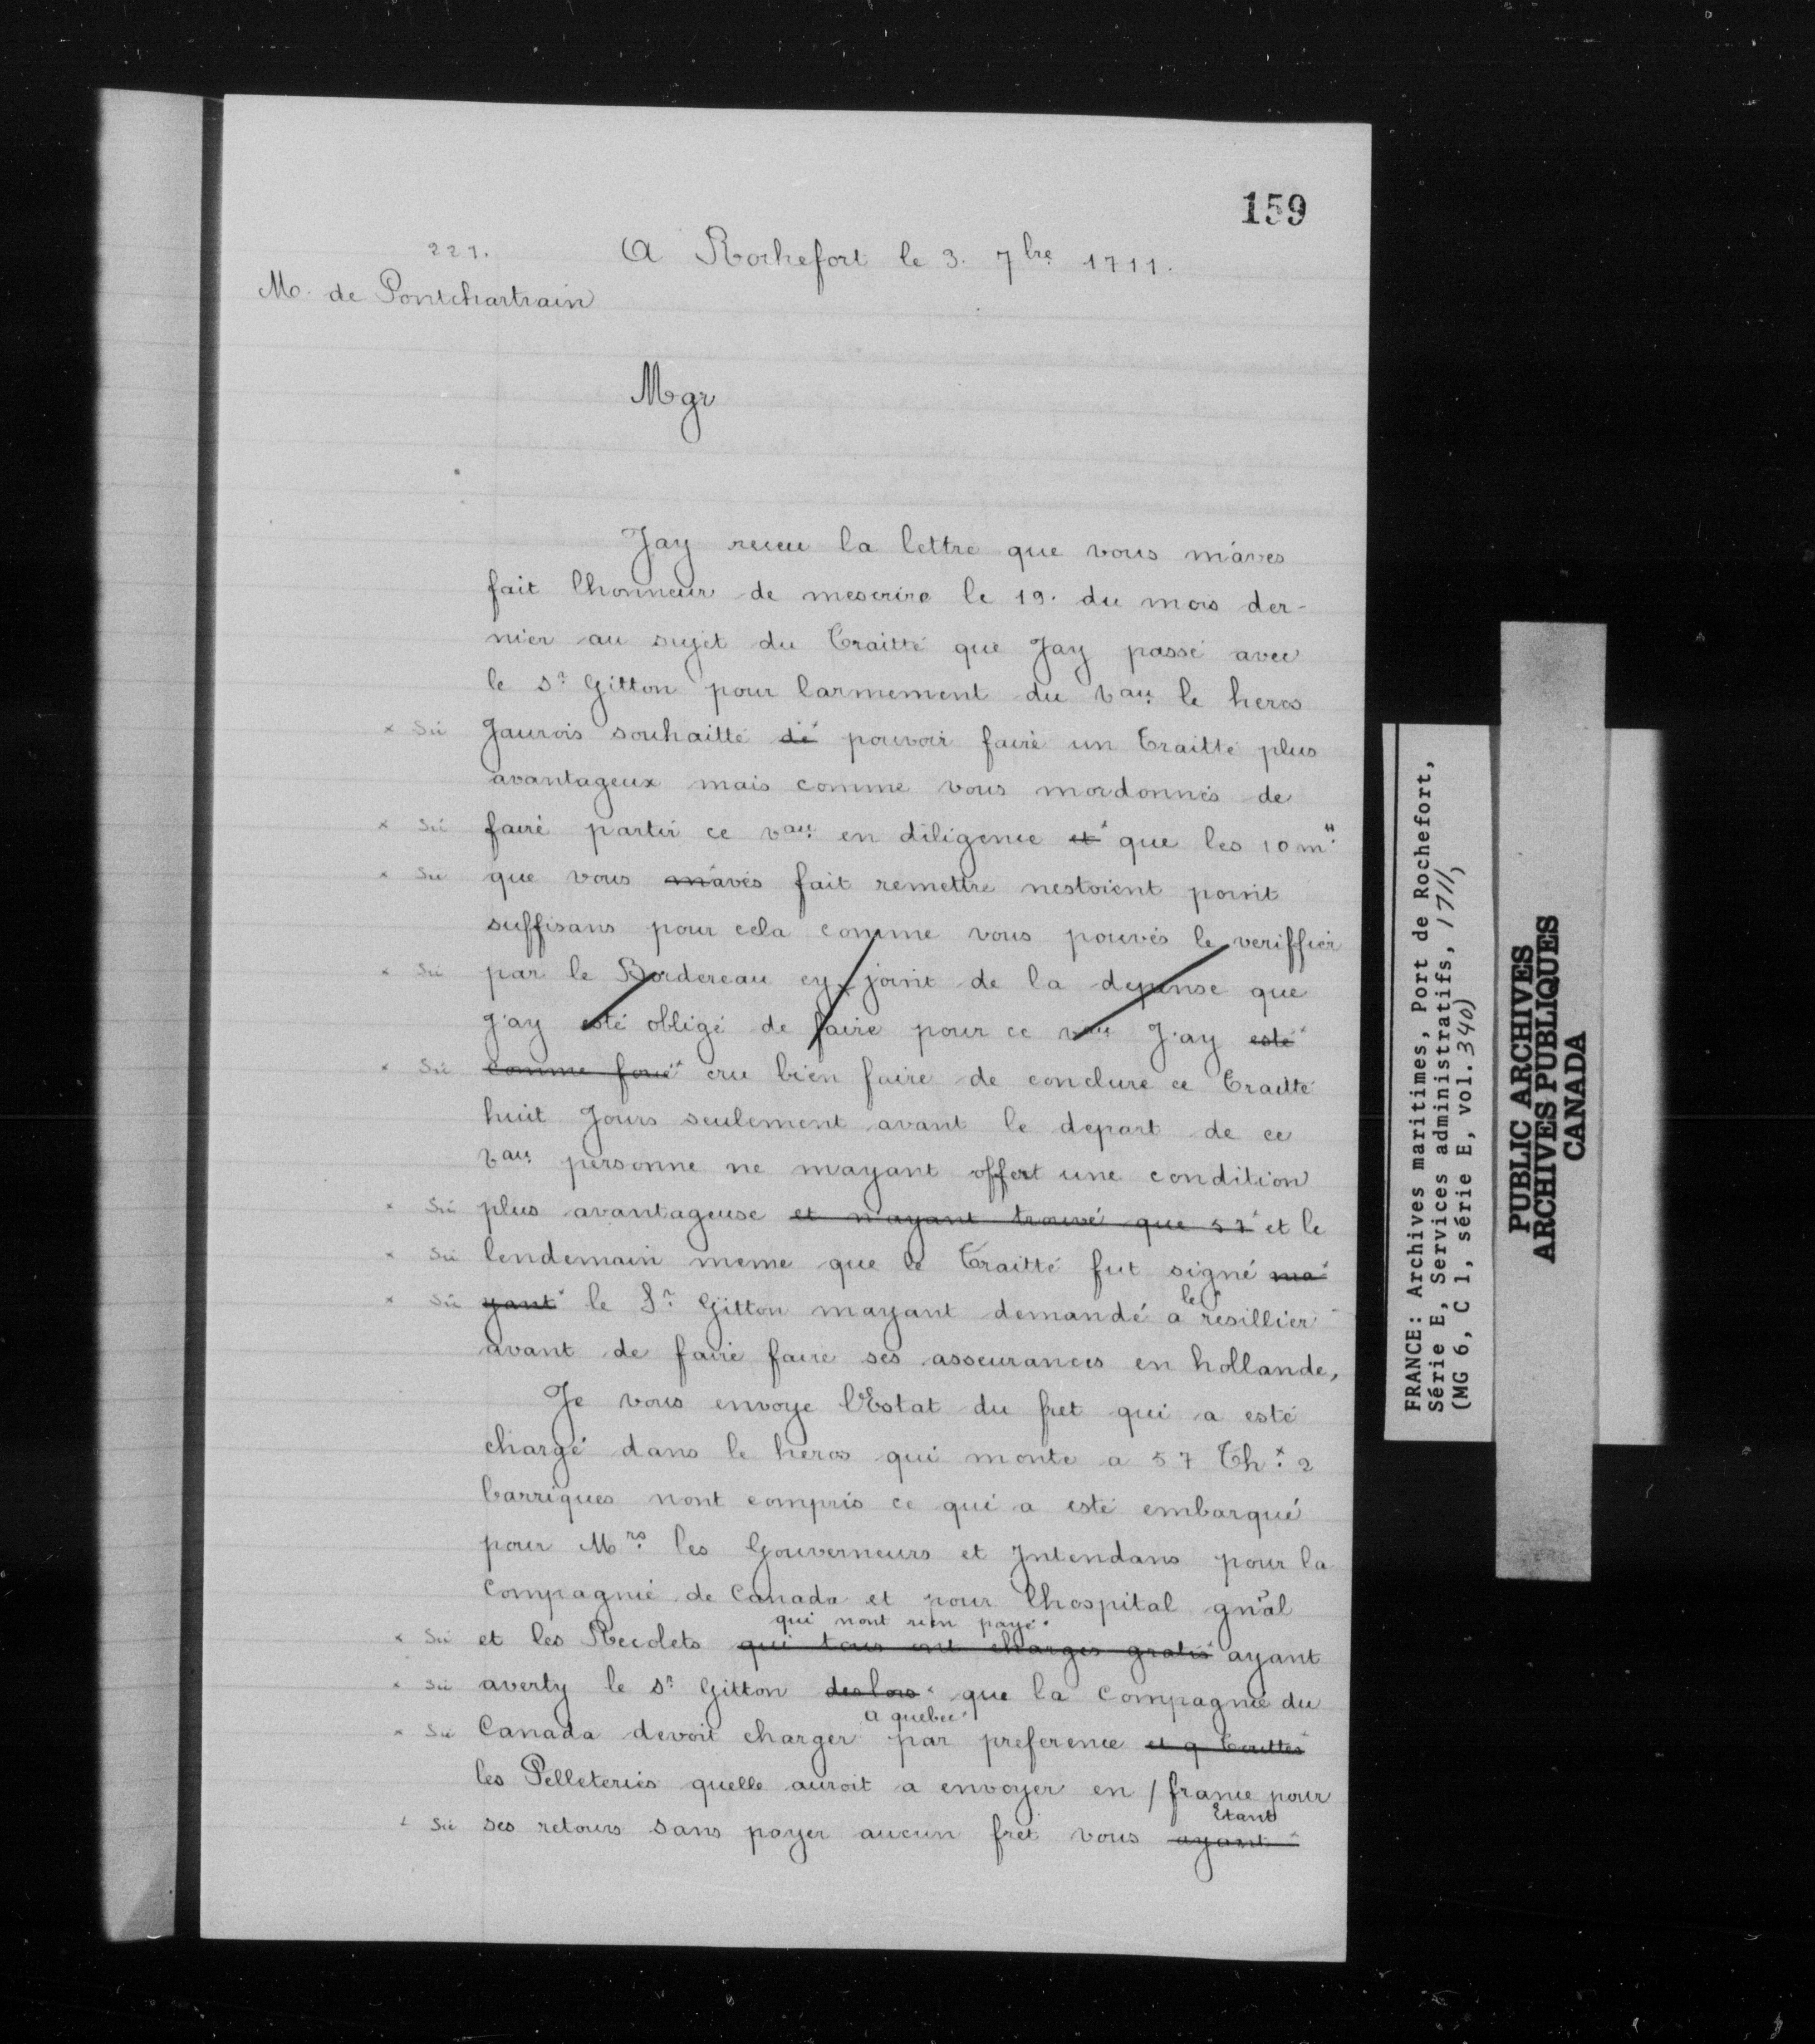 159
221. A Rochefort le 3. 7bre 1711.
M. de Pontchartrain
Mgr
Jay receu la lettre que vous m'aves
fait lhonneur de mescrire le 19. du mois der-
nier au sujet du Traitté que Jay passé avec
le Sr Gitton pour larmement du Vau le heros
x Sic Jaurois souhaitté de pouvoir faire un Traitté plus
avantageux mais comme vous mordonnés de
x Sic faire partir ce vau en diligence et x que les 10 m.#
x Sic que vous m'avés fait remettre nestoient point
suffisans pour cela comme vous pouvés le veriffier
x Sic par le Bordereau cy joint de la depense que
J'ay esté obligé de faire pour ce vau J'ay esté x
x Sic comme forcé x cru bien faire de conclure ce Traitté
huit Jours seulement avant le depart de ce
Vau personne ne mayant offert une condition
x Sic plus avantageuse et n'ayant trouvé que 57 x et le
x Sic lendemain meme que le Traitté fut signé ma x
x Sic yant x le Sr Gitton mayant demandé a le resillier
avant de faire faire ses asseurances en hollande,
Je vous envoye l'Estat du fret qui a esté
chargé dans le heros qui monte a 57 Th.x 2
barriques nont compris ce qui a esté embarqué
pour Mrs les Gouverneurs et Intendans pour la
Compagnie de Canada et pour lhospital gn'al
qui nont rien payé.
x Sic et les Recolets qui tous ont chargés gratis x ayant
x Sic averty le Sr Gitton deslors x que la Compagnie du
a quebec
x Sic Canada devoit charger par preference et q Touttes x
les Pelleteries quelle auroit a envoyer en / france pour
Etant
x Sic ses retours sans payer aucun fret vous ayant x
FRANCE: Archives maritimes, Port de Rochefort,
Série E, Services administratifs, 1711,
(MG 6, C 1, série E, vol. 340)
PUBLIC ARCHIVES
ARCHIVES PUBLIQUES
CANADA